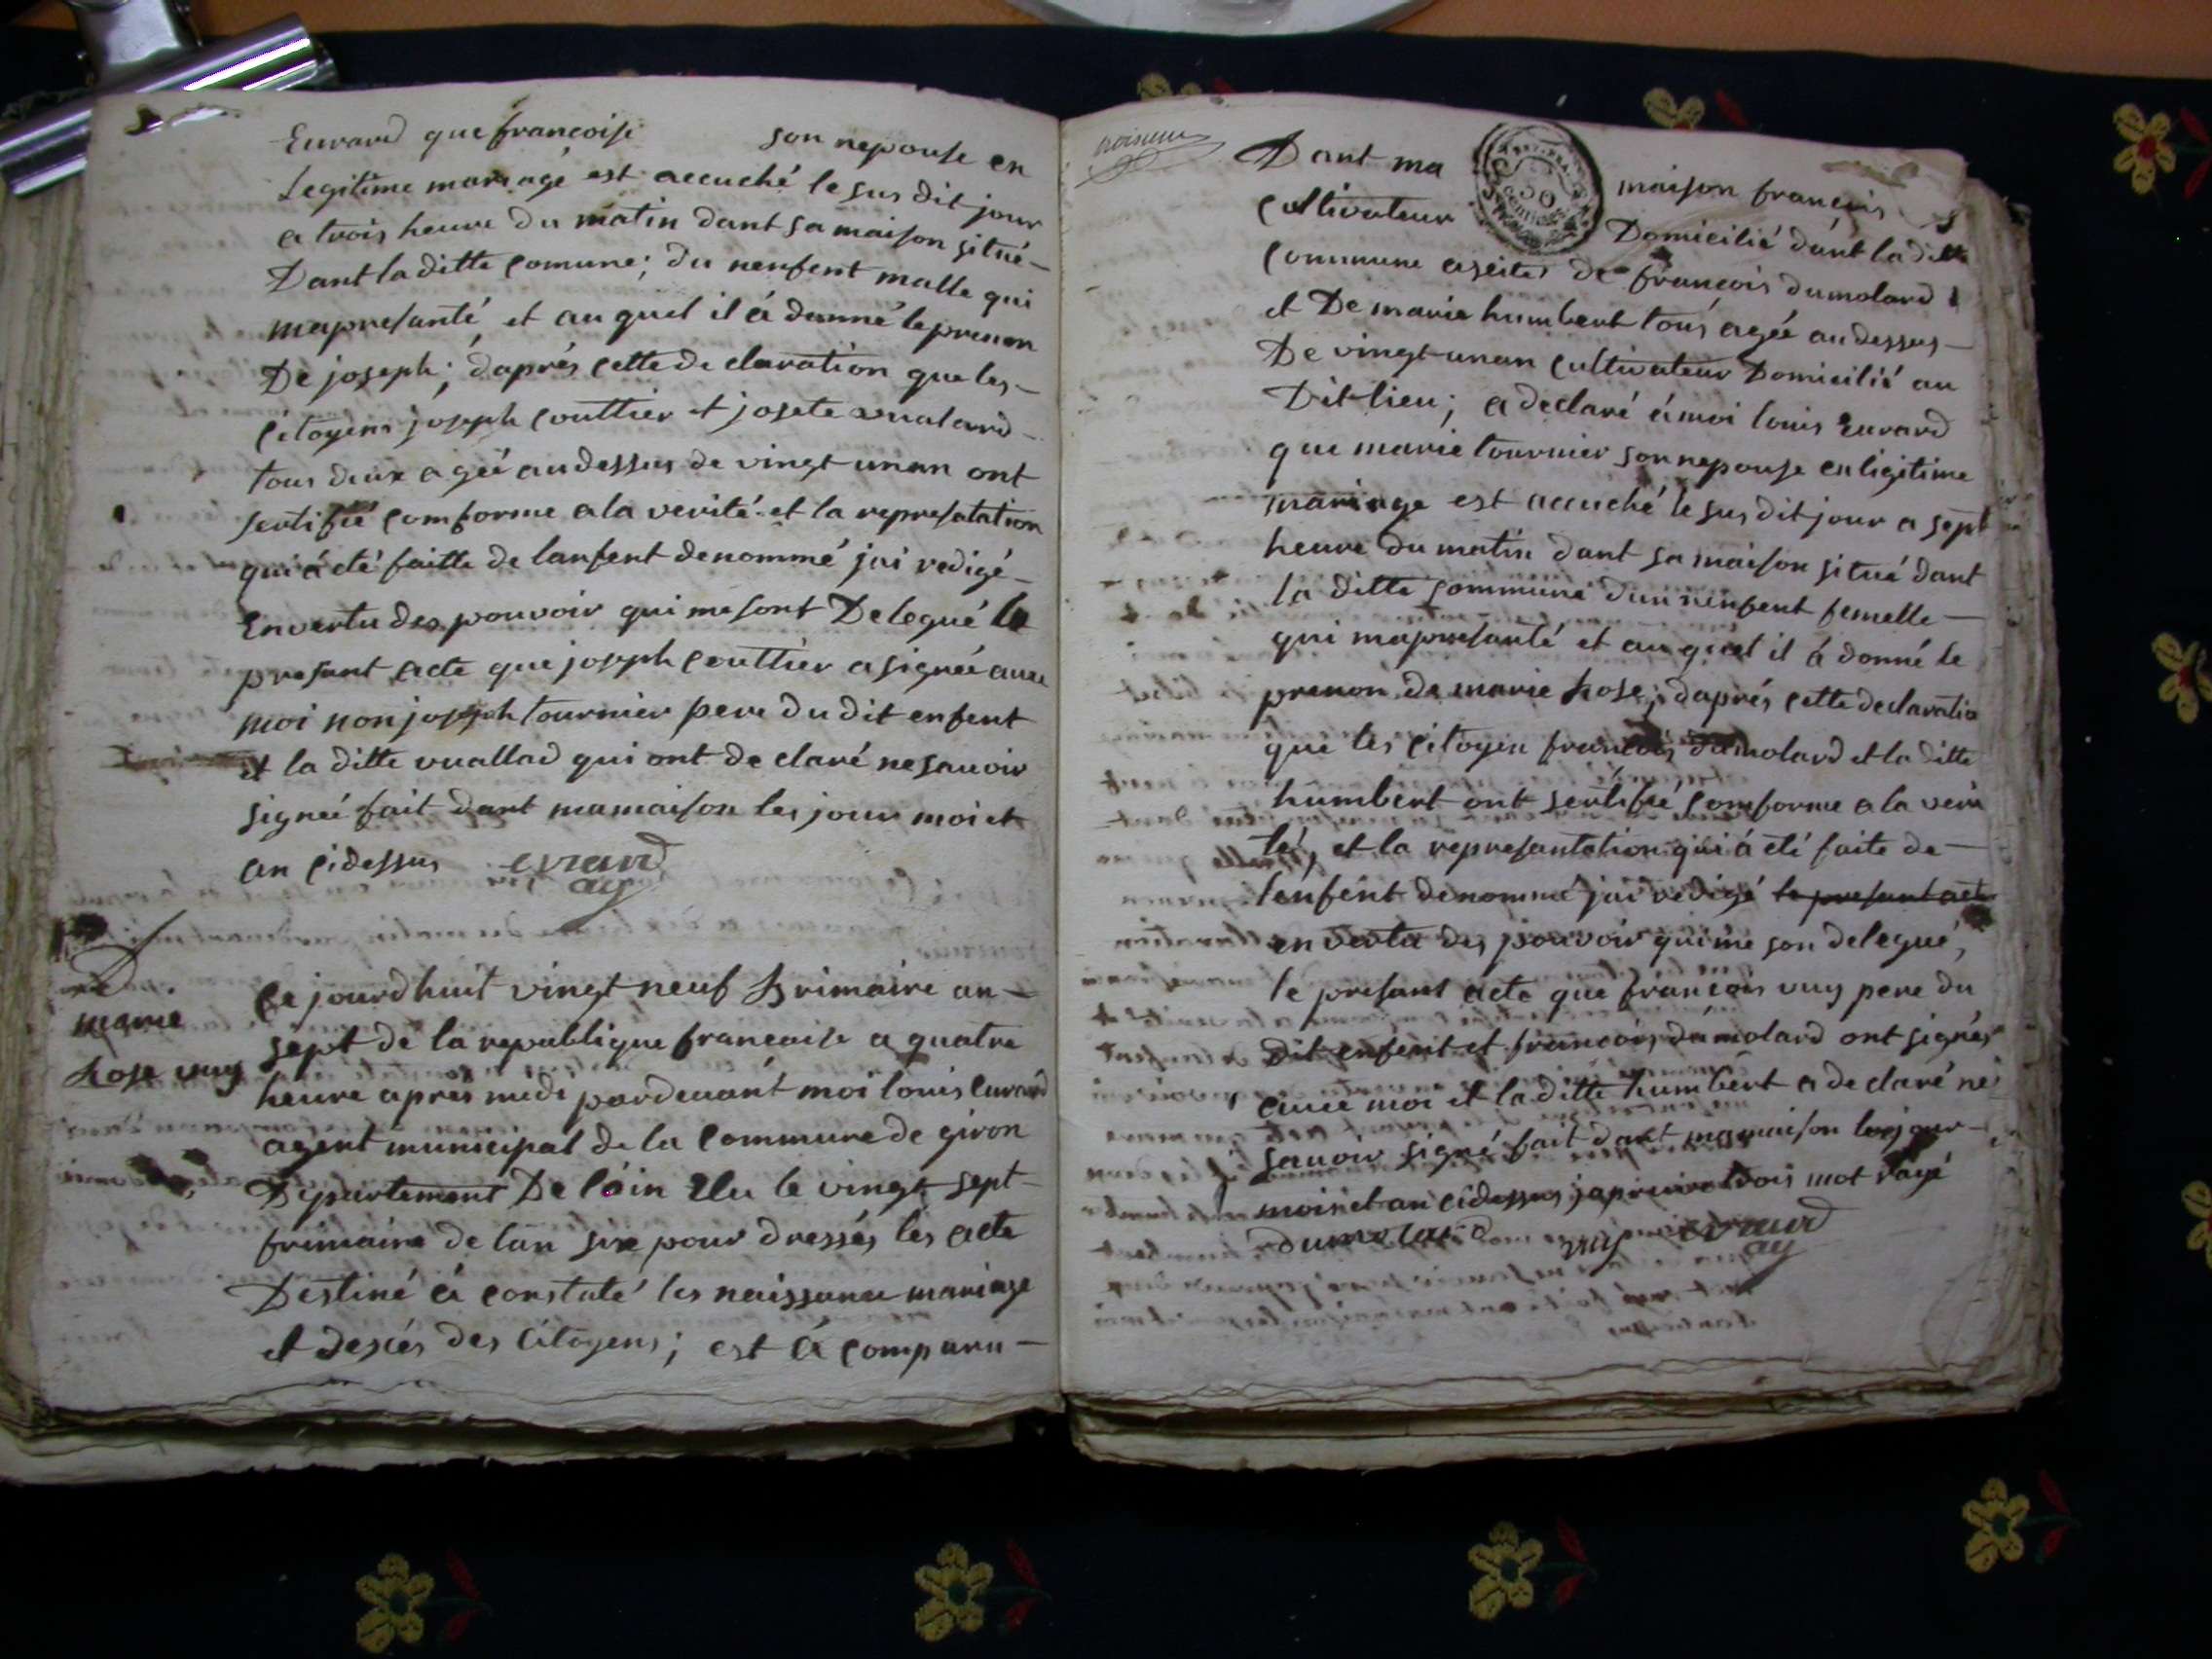 Eurard que françoise son nepouse en
Legitime mariage est accuché le sus dit jour
a trois heure du matin dant sa maison situé
Dant la ditte comune; du nenfent malle qui
mapresanté et au quel il á donné le prenon
De joseph; daprés cette declaration que les
citoyens joseph couttier et josete vualard
tous deux ageé au dessus de vingt unan ont
sertifié comforme a la verité et la represatation
qui á eté faitte de lanfent denommé jai redigé
En vertu des pouvoir qui me sont Delegué le
presant acte que joseph couttier a signée avec
moi non joseph tournier pere du dit enfent
et la ditte vuallad qui ont declaré ne sauoir
signeé fait dant ma maison les jour moi et
an cidessus evrard
ag
marie
hose vuy
Ce jourdhuit vingt neuf frimaire an
sept de la republique francaise a quatre
heure aprés midi pardeuant moi louis Eurard
agent municipal de la Commune de giron
Departement De lain Elu le vingt sept
frimaire de lan six pour dressés les acte
Destiné á constaté les naissance mariage
et desces des citoyens; est á comparu
Dant ma maison françois
cultivateur Domicilié dant la ditte
commune aseites de françois dumolard
et De marie humbert tous agée au dessus
De vingt unan cultivateur Domicilié au
Dit lieu; a declaré á moi louis Eurard
que marie tournier son nepouse en ligitime
mariage est accuché le sus dit jour a sept
heure du matin dant sa maison situé dant
la ditte commune dun nenfent femelle
qui mapresanté et au quel il á donné le
prenon de marie hose; daprés cette declaratio
que les citoyen francois dumolard et la ditte
humbert ont sertifié comforme a la veri
té, et la represantation qui á eté faite de
lenfent denommé jai redigé le presant acte
en vertu des pouvoir qui me son delegué,
le presant acte que francois vuy pere du
dit enfent et francois dumolard ont signés
avec moi et la ditte humbert a declaré ne
sauoir signé fait dant ma maison les jour
moi et an cidessus japreuve trois mot rayé
dumolard vuy evrard
ag